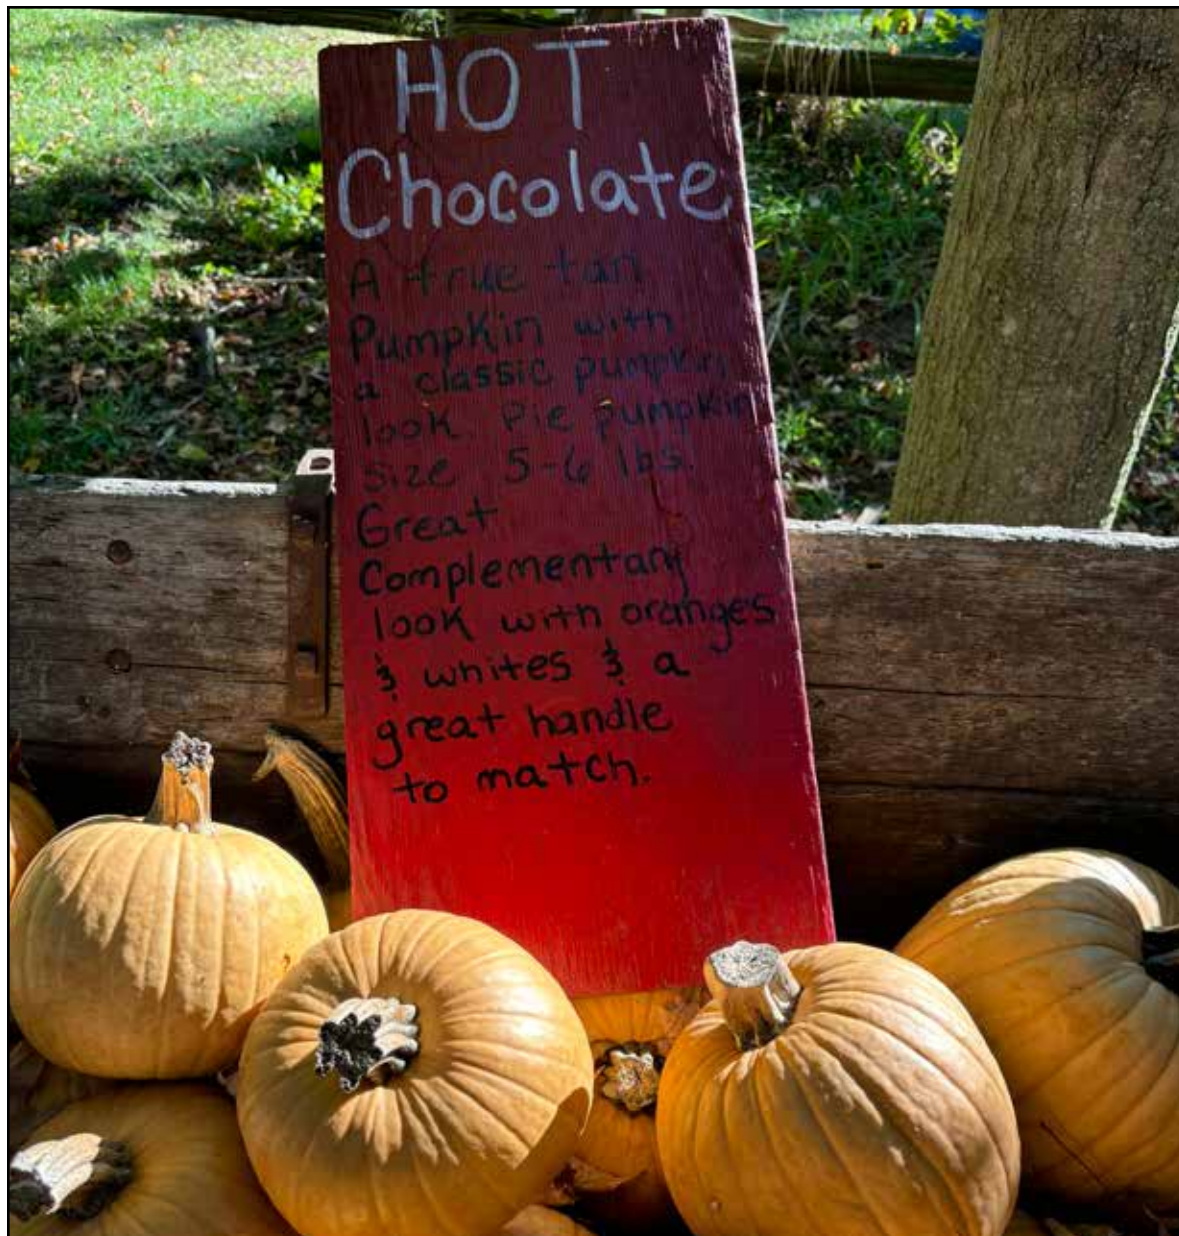 HOT
Chocolate
A true tan
Pumpkin with
a classic pumpkin
look. Pie pumpkin
size 5-6 lbs.
Great
Complementary
look with oranges
& whites & a
great handle
to match.